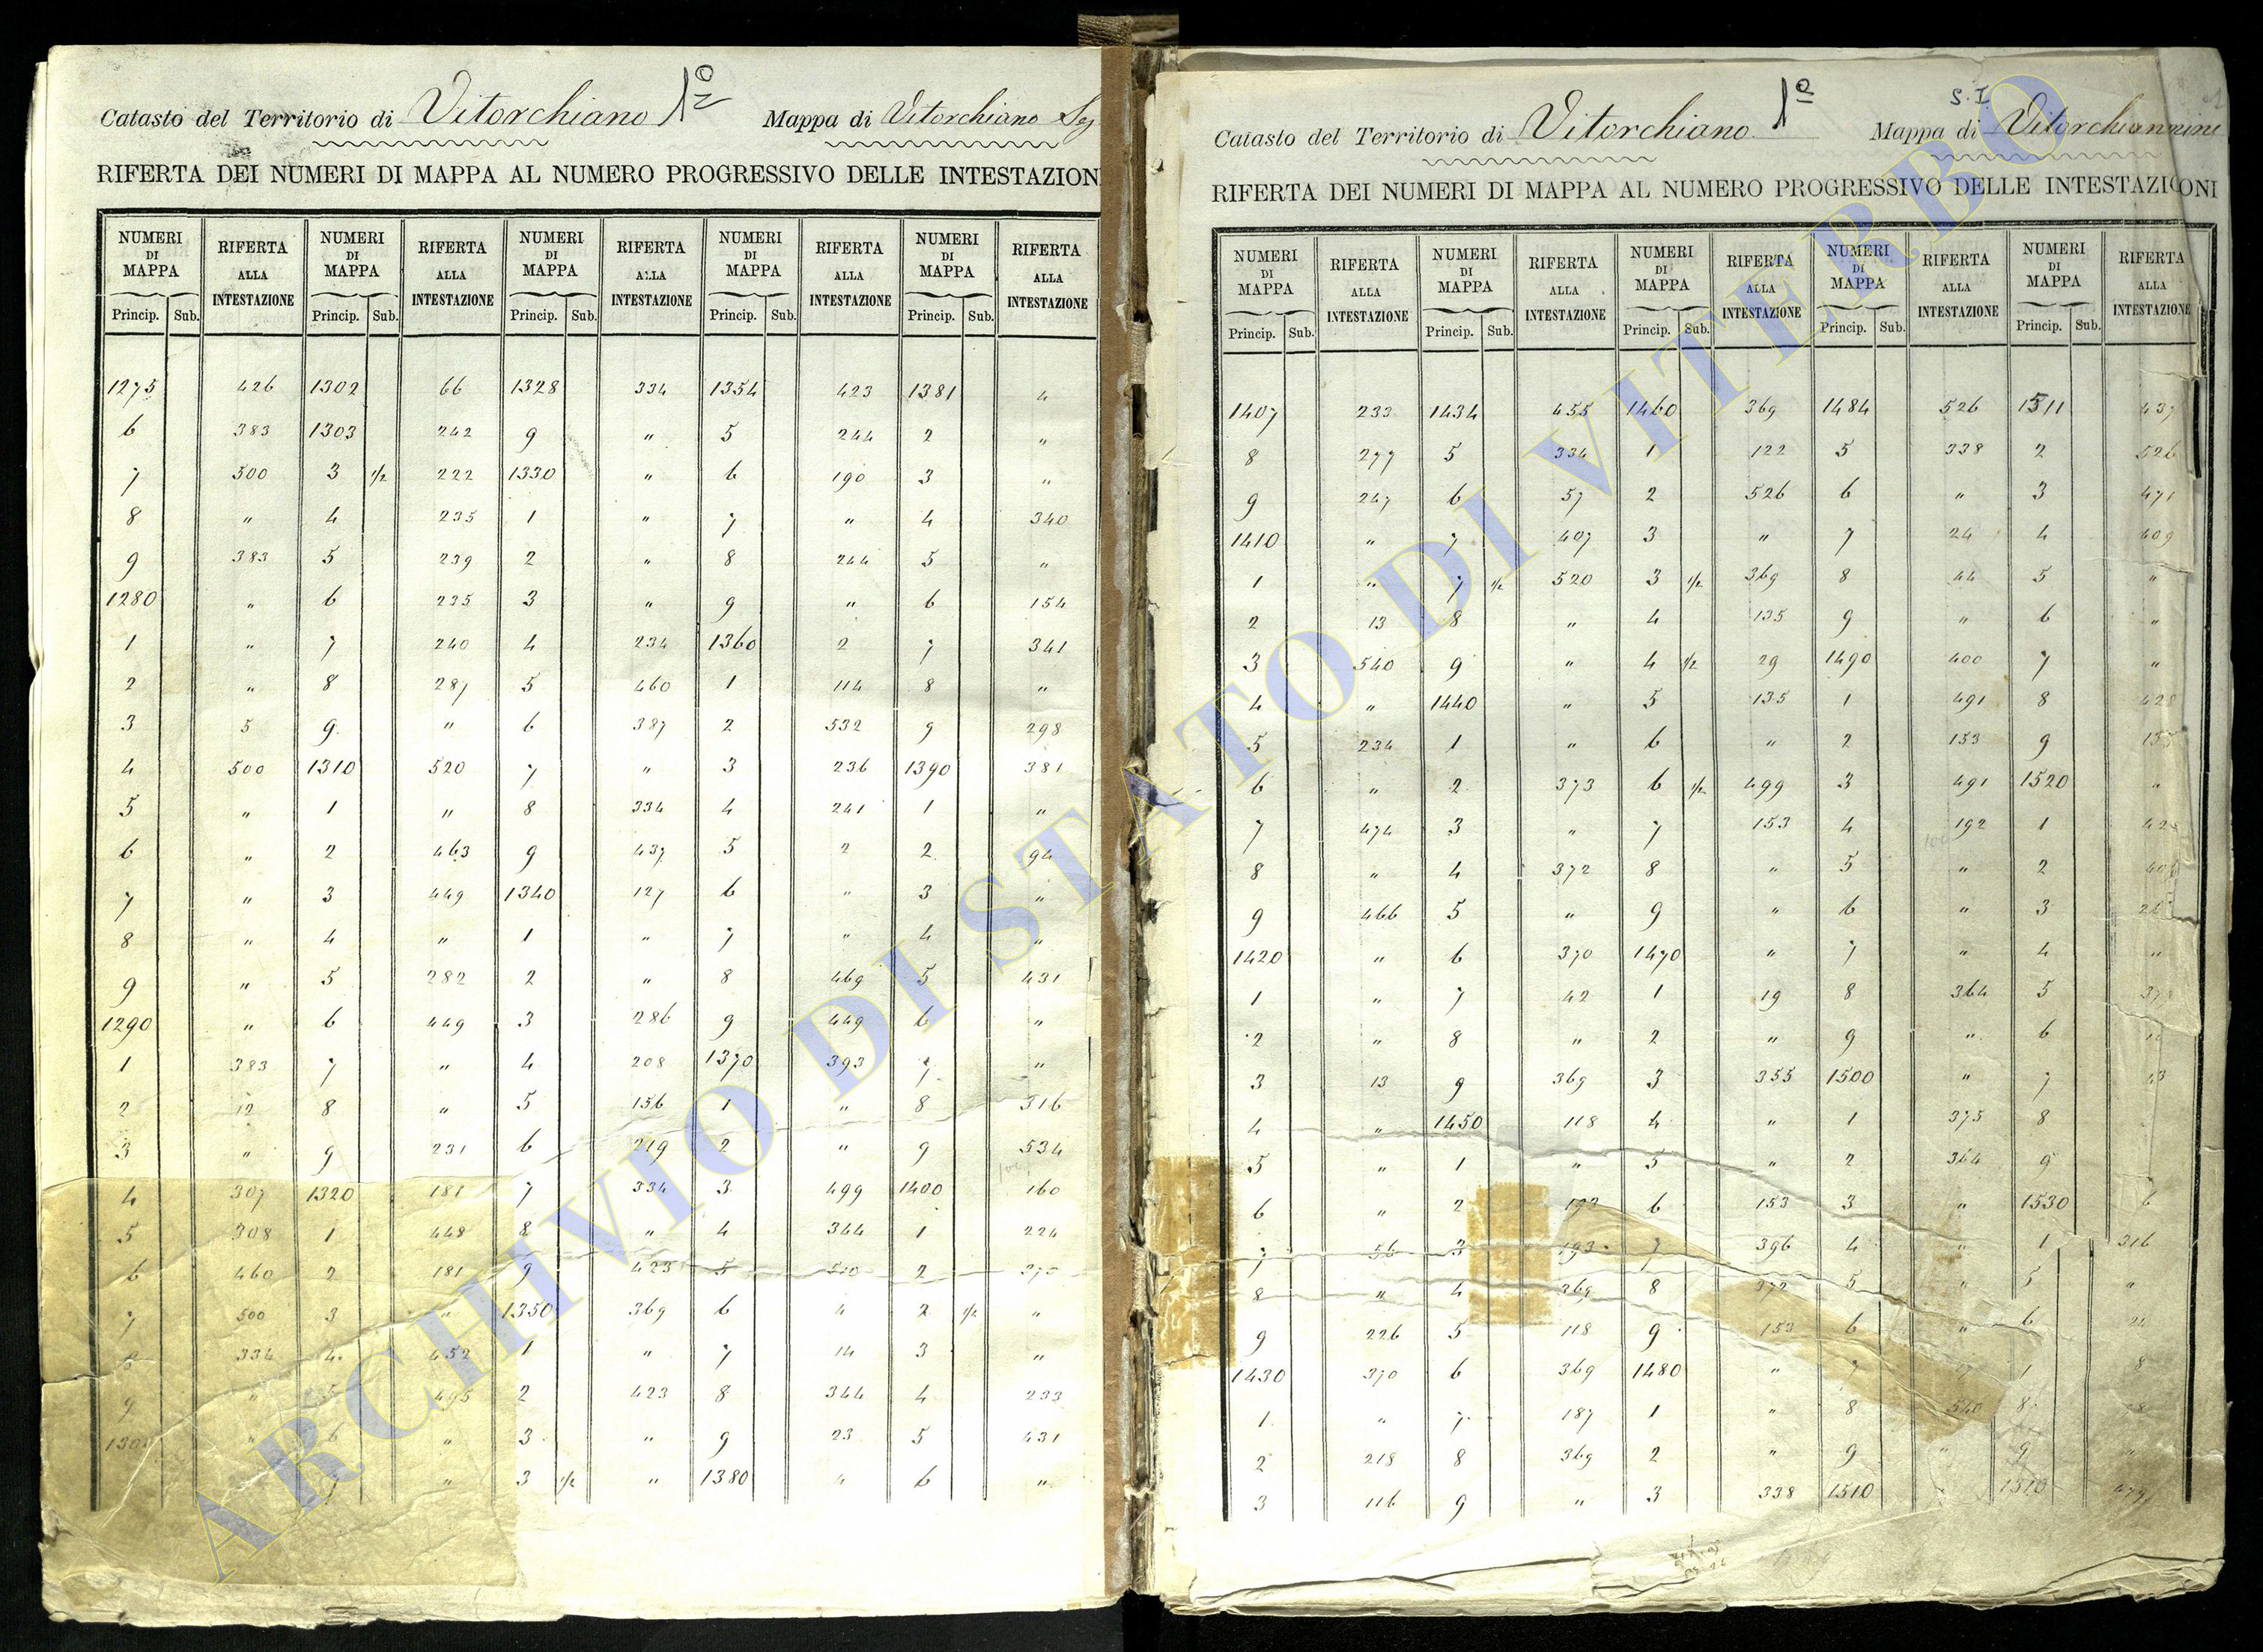 Catasto del Territorio di Vitorchiano 1º Mappa di Vitorchiano
RIFERTA DEI NUMERI DI MAPPA AL NUMERO PROGRESSIVO DELLE INTESTAZION
NUMERI DI MAPPA RIFERTA ALLA INTESTAZIONE NUMERI DI MAPPA RIFERTA ALLA INTESTAZIONE NUMERI DI MAPPA RIFERTA ALLA INTESTAZIONE NUMERI DI MAPPA RIFERTA ALLA INTESTAZIONE NUMERI DI MAPPA RIFERTA ALLA INTESTAZIONE
Princip. Sub. Princip. Sub. Princip. Sub. Princip. Sub. Princip. Sub.
1275 426 1302 66 1328 334 1354 423 1381 4
6 383 1303 242 9 " 5 244 2 "
7 500 3 1/2 222 1330 " 6 190 3 "
8 " 4 235 1 " 7 " 4 340
9 383 5 239 2 " 8 244 5 "
1280 " 6 235 3 " 9 " 6 154
1 " 7 240 4 234 1360 2 7 341
2 " 8 287 5 460 1 114 8 "
3 5 9 " 6 387 2 532 9 298
4 500 1310 520 7 " 3 236 1390 381
5 " 1 " 8 334 4 241 1 "
6 " 2 463 9 437 5 2 2 94
7 " 3 449 1340 127 6 " 3 "
8 " 4 " 1 " 7 " 4 "
9 " 5 282 2 " 8 469 5 431
1290 " 6 449 3 286 9 449 6 "
1 383 7 " 4 208 1370 393 7 "
2 12 8 " 5 156 1 " 8 316
3 " 9 231 6 219 2 " 9 534
4 307 1320 181 7 334 3 499 1400 160
5 308 1 448 8 " 4 344 1 224
6 460 2 181 9 423 5 510 2 370
7 500 3 " 1350 369 6 4 2 1/2 "
8 334 4 452 1 " 7 14 3 "
9 " 5 495 2 423 8 344 4 233
" 6 " 3 " 9 23 5 431
" 3 1/2 " 1380 " 6 "
Catasto del Territorio di Vitorchiano 1º S.I. Mappa di Vitorchiano
RIFERTA DEI NUMERI DI MAPPA AL NUMERO PROGRESSIVO DELLE INTESTAZIONI
NUMERI DI MAPPA RIFERTA ALLA INTESTAZIONE NUMERI DI MAPPA RIFERTA ALLA INTESTAZIONE NUMERI DI MAPPA RIFERTA ALLA INTESTAZIONE NUMERI DI MAPPA RIFERTA ALLA INTESTAZIONE NUMERI DI MAPPA RIFERTA ALLA INTESTAZIONE
Princip. Sub. Princip. Sub. Princip. Sub. Princip. Sub. Princip. Sub.
1407 233 1434 455 1460 369 1484 526 1511 437
8 277 5 334 1 122 5 338 2 526
9 247 6 57 2 526 6 " 3 471
1410 " 7 407 3 " 7 24 4 409
1 " 7 1/2 520 3 1/2 369 8 44 5 "
2 13 8 " 4 135 9 " 6 "
3 540 9 " 4 1/2 29 1490 400 7 "
4 " 1440 " 5 135 1 491 8 428
5 234 1 " 6 " 2 153 9
6 " 2 373 6 1/2 499 3 491 1520 "
7 474 3 " 7 153 4 192 1
8 " 4 372 8 " 5 " 2
9 466 5 " 9 " 6 " 3
1420 " 6 370 1470 " 7 " 4 "
1 " 7 42 1 19 8 364 5
2 " 8 " 2 " 9 " 6
3 13 9 369 3 355 1500 " 7
4 " 1450 118 4 " 1 375 8
5 " 1 " 5 " 2 364 9
6 " 2 192 6 153 3 " 1530 6
7 56 3 193 7 396 4 " 1 316
8 " 4 369 8 372 5 " 5 "
9 226 5 118 9 153 6 " 6
1430 370 6 369 1480 " 7
1 " 7 187 1 " 8 540 8
2 218 8 369 2 " 9 " 9 "
3 116 9 " 3 338 1510
ARCHIVIO DI STATO DI VITERBO